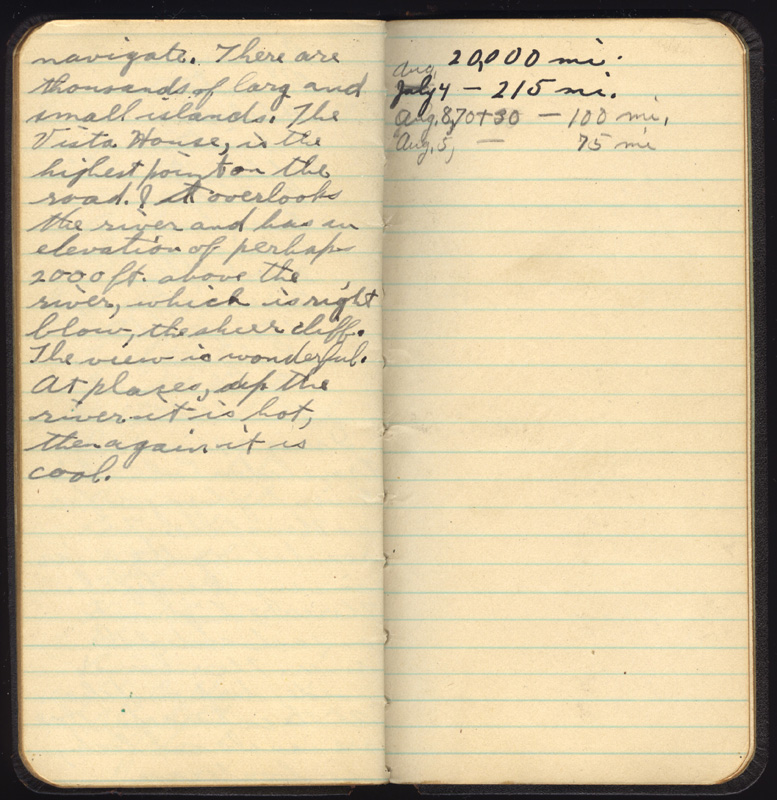 navigate. There are
thousands of larg and
small islands. The
Vista House, is the
highest point on the
road. It overlooks
the river and has an
elevation of perhaps
2000 ft. above the
river, which is right
blow, the sheer cliff.
The view is wonderful.
At places, the
river it is hot,
then again it is
cool.
20,000 mi.
Aug.
July 4 - 215 mi.
Aug. 8, 70+30 - 100 mi.
Aug. 5, - 75 mi